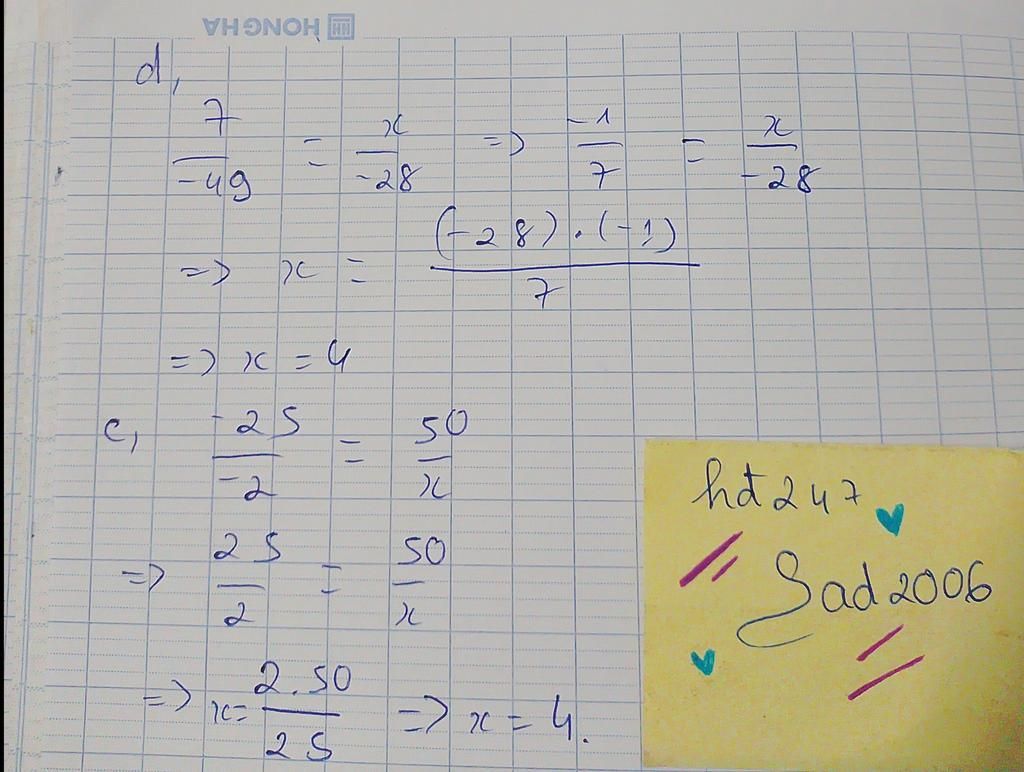 HONG HA
d,
7/-49 = x/-28 => -1/7 = x/-28
=> x = (-28).(-1)/7
=> x = 4
c, -25/-2 = 50/x
=> 25/2 = 50/x
=> x= 2.50/25 => x = 4.
hđ247
Sad2006